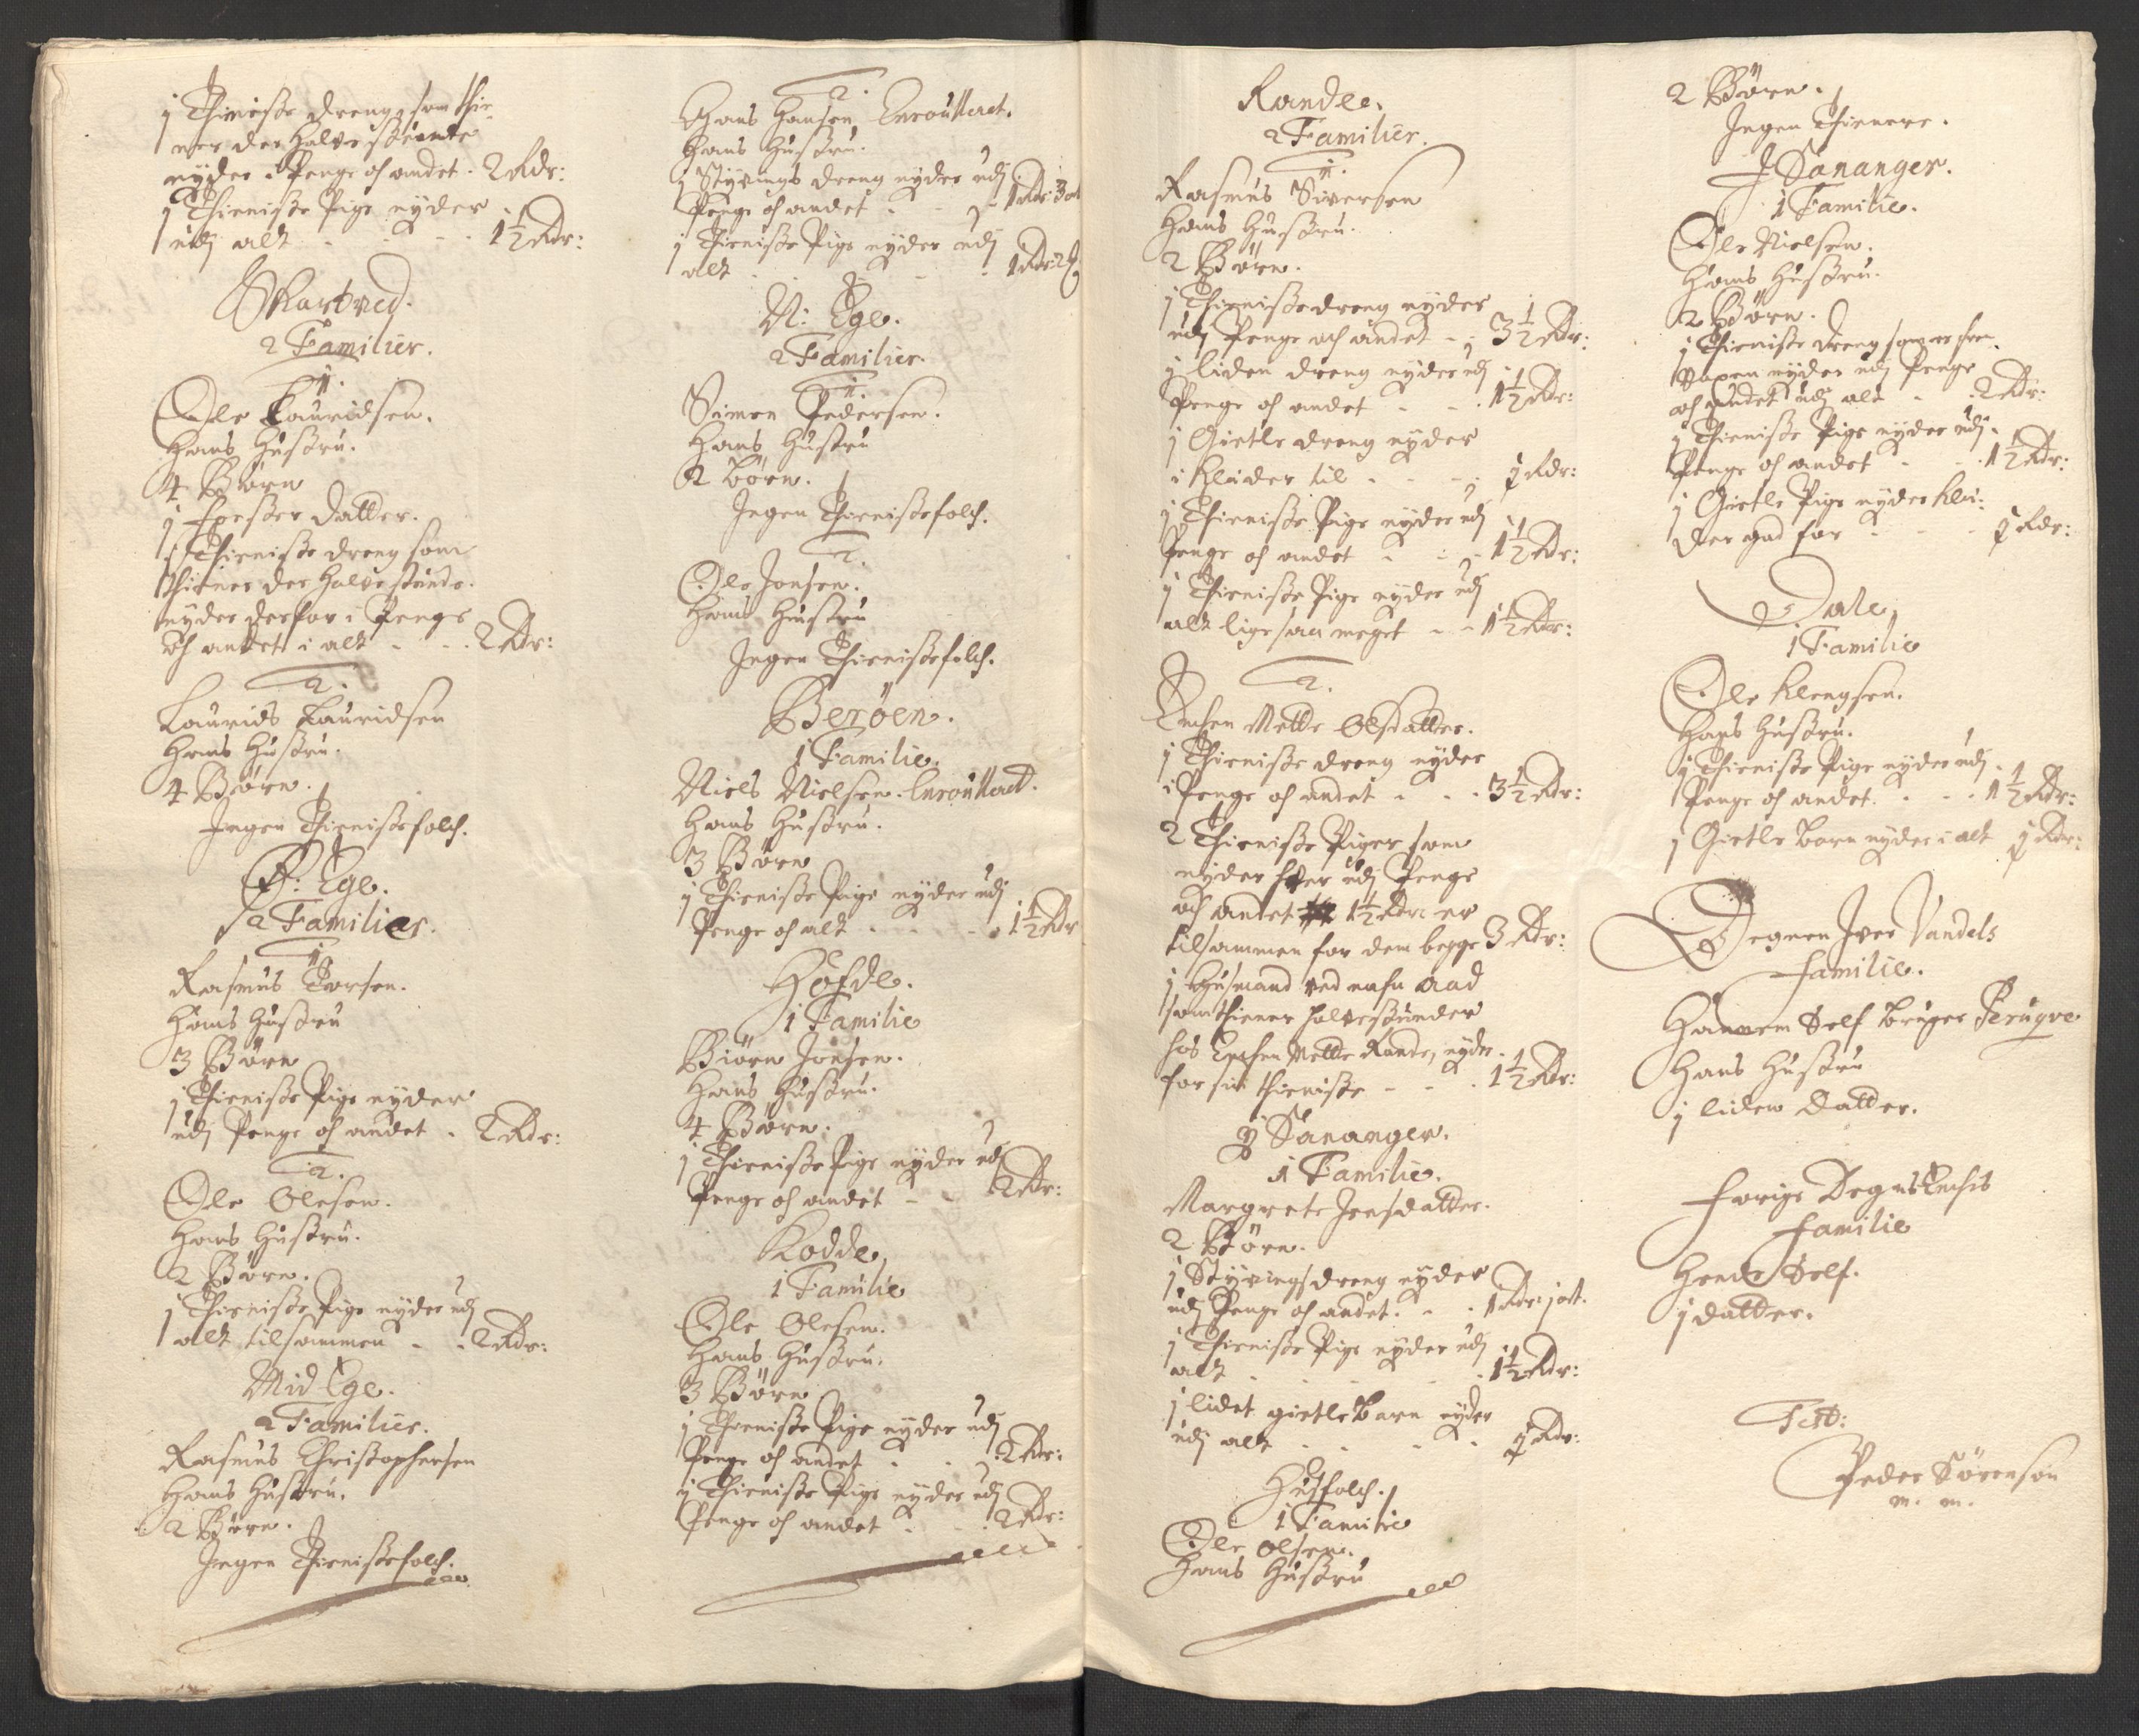 j Thieniste dreng, som thie-
ner der halve stunde
nyder i Penge och andet - 2 Rdr:
j Thieniste Pige nyder
udj alt - - - 1½ Rdr:
Skartved.
2 Familier.
1.
Ole Lauridsen.
Hans Hustru.
4 Børn
j Foster Datter.
j Thieniste dreng som
thiener der halve stunde.
nyder derfor i Penge
och andet i alt - - 2 Rdr:
2.
Laurids Lauridsen
Hans Hustru.
4 Børn.
Ingen Thienistefolch.
Ø: Ege.
2 Familier.
1.
Rasmus Torsen.
Hans Hustru
3 Børn
j Thieniste Pige nyder
udj Penge och andet - 2 Rdr:
2.
Ole Olesen.
Hans Hustru.
2 Børn.
j Thieniste Pige nyder udj
alt tilsammen - - 2 Rdr:
Mid Ege.
2 Familier.
Rasmus Christophersen
Hans Hustru.
2 Børn.
Ingen Thienistefolch.
2.
Hans Hansen Enroulleret.
Hans Hustru.
j Styvings dreng nyder udj
Penge och andet - - 1 Rdr: 3 ort
j Thieniste Pige nyder udj
alt - - - 1 Rdr:
N: Ege.
2 Familier.
1.
Simen Pedersen.
Hans Hustru
2 børn.
Ingen Thienistefolch.
2.
Ole Jonsen.
Hans Hustru
Ingen Thienistefolch.
Berøen.
1 Familie.
Niels Nielsen. Enroulleret.
Hans Hustru.
3 Børn
j Thieniste Pige nyder udj
Penge och alt - - - 1½ Rdr
Høfde.
1 Familie
Biørn Jonsen.
Hans Hustru.
4 Børn.
j Thieniste Pige nyder udj
Penge och andet - - 2 Rdr:
Kodde
1 Familie
Ole Olesen.
Hans Hustru.
3 Børn
j Thieniste Pige nyder udj
Penge och andet - - 2 Rdr:
j Thieniste Pige nyder udj
Penge och andet - - 2 Rdr:
Randee.
2 Familier.
1.
Rasmus Siversen
Hans Hustru.
2 Børn.
j Thienistedreng nyder
udj Penge och andet - - 3½ Rdr:
j liden dreng nyder udj
Penge och andet - - 1½ Rdr:
j Gietle dreng nyder
i Klæder til - - - 1 Rdr:
j Thieniste Pige nyder udj
Penge och andet - - 1½ Rdr:
j Thieniste Pige nyder udj
alt lige saa meget - - 1½ Rdr:
2.
Enchen Mette Olsdatter.
j Thieniste dreng nyder
i Penge och andet - - 3½ Rdr:
2 Thieniste Piger som
nyder hver udj Penge
och andet 1½ Rdr: er
tilsammen for dem begge 3 Rdr:
j Husmand ved nafn Aad
som thiener halve stunder
hos Enchen Mette Rande, nyder
for sin thieniste - - 1½ Rdr:
Y Sananger.
1 Familie.
Margrete Jensdatter.
2 Børn.
j Styvingsdreng nyder
udj Penge och andet. - - 1 Rdr: j ort.
j Thieniste Pige nyder udj
alt - - - - 1½ Rdr:
j lidet gietle Barn nyder
udj alt - - - 1 Rdr:
Husfolch.
1 Familie
Ole Olsen.
Hans Hustru
2 Børn.
Ingen Thienere.
I Sananger.
1 Familie.
Ole Nielsen.
Hans Hustru.
2 Børn.
j Thieniste dreng som er
voxen nyder udj Penge
och andet udj alt - - 2 Rdr:
j Thieniste Pige nyder udj
Penge och andet - - 1½ Rdr:
j Gietle Pige nyder Klæ-
der god for - - - 1 Rdr:
Dale,
1 Familie
Ole Klengsen.
Hans Hustru.
j Thieniste Pige nyder udj
Penge och andet - - - 1½ Rdr:
j Gietle barn nyder i alt 1 Rdr:
Degnen Iver Vandels
Familie.
Hannem Self bruger Perugve
Hans Hustru
j liden Datter.
Forige Degns Enches
Familie
Hende Self.
j datter.
Test:
Peder Sørensøn
m. m.